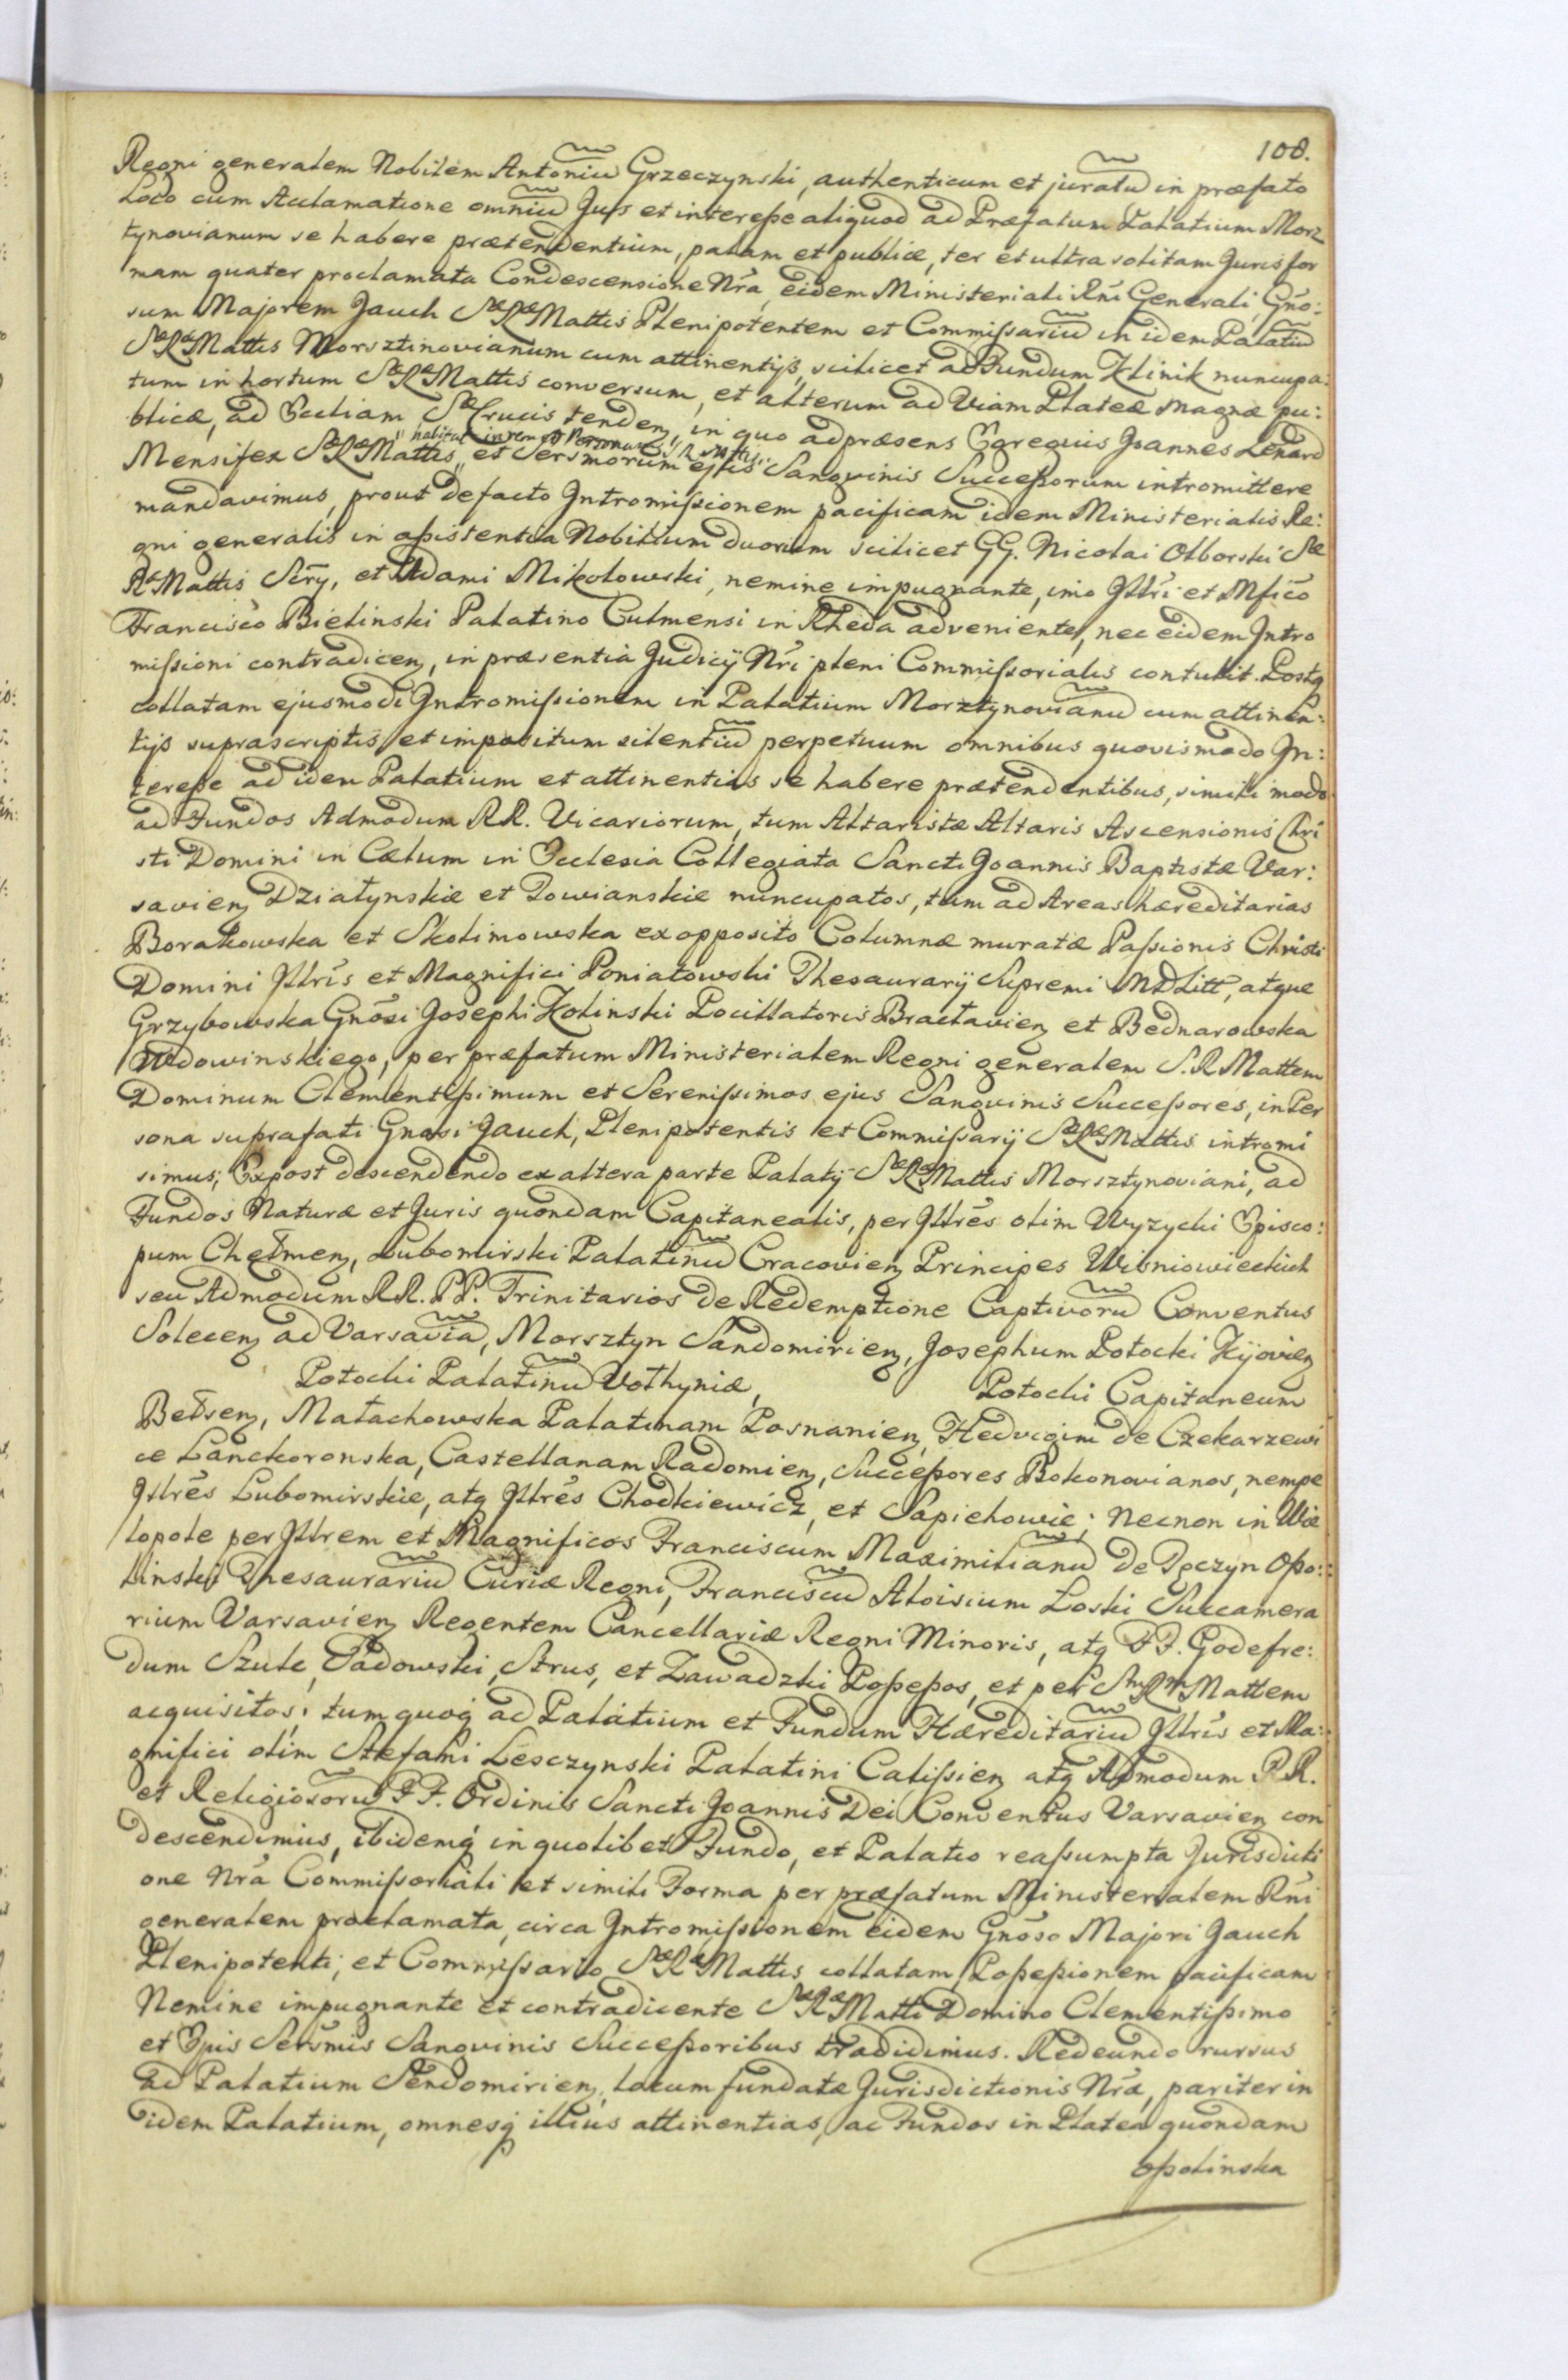 108.
Regni generalem Nobilem Antoniu Grzeczynski, authenticum et juratu in præfato
Loco cum Acclamatione omniu Juss et interesse aliquod ad Præfatum Palatium Morz
tynovianum se habere prætendentium, palam et publicæ, ter et ultra solitam Juris for
mam quater proclamata Condescensione Nrã, eidem Ministeriali Rñi Generali, Gño:
sum Majorem Jauch Sæ Ræ Mattis Plenipotentem et Commissariu in idem Palatiu
Sæ Ræ Mattis Morsztinovianum cum attinentijs, scilicet ad Fundum Klinik nuncupa:
tum in hortum Sæ Ræ Mattis conversum, et alterum ad Viam Plateæ magnæ pu:
blicæ, ad Eccliam Sæ Crucis tendenz, in quo ad præsens Egregius Joannes Lenard
Mensifex Sæ Ræ Mattis habitat in rem et Personam S R Mattis et Sersmorum ejus Sangvinis Successorum intromittere
mandavimus, prout de facto Intromissionem pacificam idem Ministerialis Re:
gni generalis in assistentia Nobilium duorum scilicet GG. Nicolai Olborski Sæ
Ræ Mattis Scrry, et Adami Mikołowski, nemine impugnante, imo Illri et Mfico
Francisco Bielinski Palatino Culmensi in Rheda adveniente, nec eidem Intro
missioni contradicenz, in præsentia Judicij Nri pleni Commissorialis contulit. Postq
collatam ejusmodi Intromissionem in Palatium Morztynovianu cum attinen:
tijs suprascriptis et impositum silentiu perpetuum omnibus quovismodo In:
teresse ad idem Palatium et attinentias se habere prætendentibus, simili modo
ad Fundos Admodum RR. Vicariorum, tum Altaristæ Altaris Ascensionis Chri
sti Domini in Cælum in Ecclesia Collegiata Sancti Joannis Baptistæ Var:
savienz Działynskie et Powianskie nuncupatos, tum ad Areas hæreditarias
Borakowska et Skolimowska ex opposito Columnæ muratæ Passionis Christi
Domini Illris et Magnifici Poniatowski Thesaurarij Supremi MDLitt, atque
Grzybowska Gnosi Josephi Kolinski Pocillatoris Bractavienz et Bednarowska
Wdowinskiego, per præfatum Ministerialem Regni generalem S. R Mattem
Dominum Clementissimum et Serenissimos ejus Sangvinis Successores, in Per
sona suprafati Gnosi Jauch, Plenipotentis et Commissarij Sæ Ræ Mattis intromi
simus; Expost descendendo ex altera parte Palatij Sæ Ræ Mattis Morsztynoviani, ad
Fundos Naturæ et Juris quondam Capitanealis, per Illres olim Wyzycki Episco:
pum Chełmenz, Lubomirski Palatinu Cracovienz Principes Wisniowieckich
seu Admodum RR. PP. Trinitarios de Redemptione Captivoru Conventus
Solecenz ad Varsavia, Morsztyn Sandomirienz, Josephum Potocki Kijovienz
Potocki Palatinu Volhyniæ, Potocki Capitaneum
Bełsenz, Małachowska Palatinam Posnanienz, Hedvigim de Czekarzewi
ce Lanckoronska, Castellanam Radomienz, Successores Bokonovianos, nempe
Illres Lubomirskie, atq Illres Chodkiewicz, et Sapiehowie; Necnon in Wie
lopole per Illrem et Magnificos Franciscum Maximilianu de Tęczyn Opo:
linski Thesaurariu Curiæ Regni, Franciscu Aloisium Łoski Succamera
rium Varsavienz Regentem Cancellariæ Regni Minoris, atq FF. Godefre:
dum Szulc, Padowski, Strus, et Zawadzki Possessos, et per Sm Rm Mattem
acquisitos; tum quoq ad Palatium et Fundum Hæreditariu Illris et Ma:
gnifici olim Stefani Lesczynski Palatini Calissienz atq Admodum RR.
et Religiosoru FF. Ordinis Sancti Joannis Dei Conventus Varsavienz con
descendimus, ibidemq in quolibet Fundo, et Palatio reassumpta Jurisdicti
one Nrã Commissoriali et simili Forma per præfatum Ministerialem Rñi
generalem proclamata, circa Intromissionem eidem Gñoso Majori Jauch
Plenipotenti; et Commissario Sæ Ræ Mattis collatam Possessionem pacificam
Nemine impugnante et contradicente Sæ Ræ Matti Domino Clementissimo
et Ejus Sersmis Sangvinis Successoribus tradidimus. Redeundo rursus
ad Palatium Sendomirienz, locum fundatæ Jurisdictionis Nræ, pariter in
idem Palatium, omnesq illius attinentias, ac Fundos in Platea quondam
Opolinska